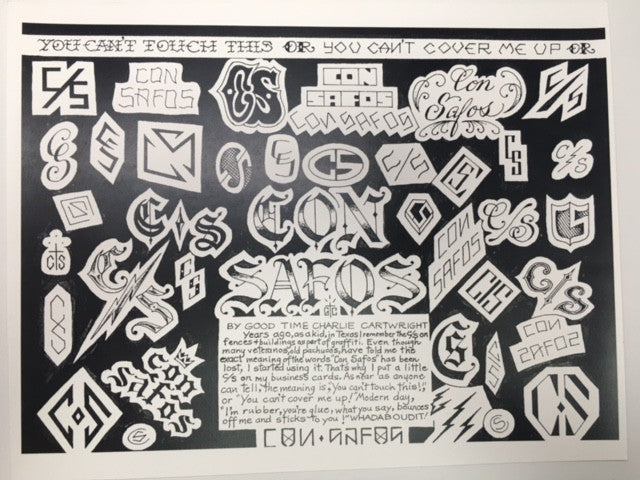 YOU CAN'T TOUCH THIS OR YOU CAN'T COVER ME UP OR
C/S
CON
SAFOS
C·S
CON
SAFOS
CON SAFOS
Con
Safos
C/S
CS
CS
CS
C/S
CS
C/S
C+S
CON
SAFOS
C/S
CON
SAFOS
CS
C/S
C/S
C/S
C/S
CON
SAFOS
ETC
BY GOOD TIME CHARLIE CARTWRIGHT
Years ago, as a kid, in Texas I remember the C/S on
fences & buildings as part of graffiti. Even though
many veteranos, old pachucos, have told me the
exact meaning of the words "Con Safos" has been
lost, I started using it. That's why I put a little
C/S on my business cards. As near as anyone
can tell, the meaning is, "You can't touch this!,"
or "You can't cover me up!" Modern day,
"I'm rubber, you're glue, what you say, bounces
off me and sticks to you!" WHADABOUDIT!
CON
SAFOS
CON
CS
CON·SAFOS